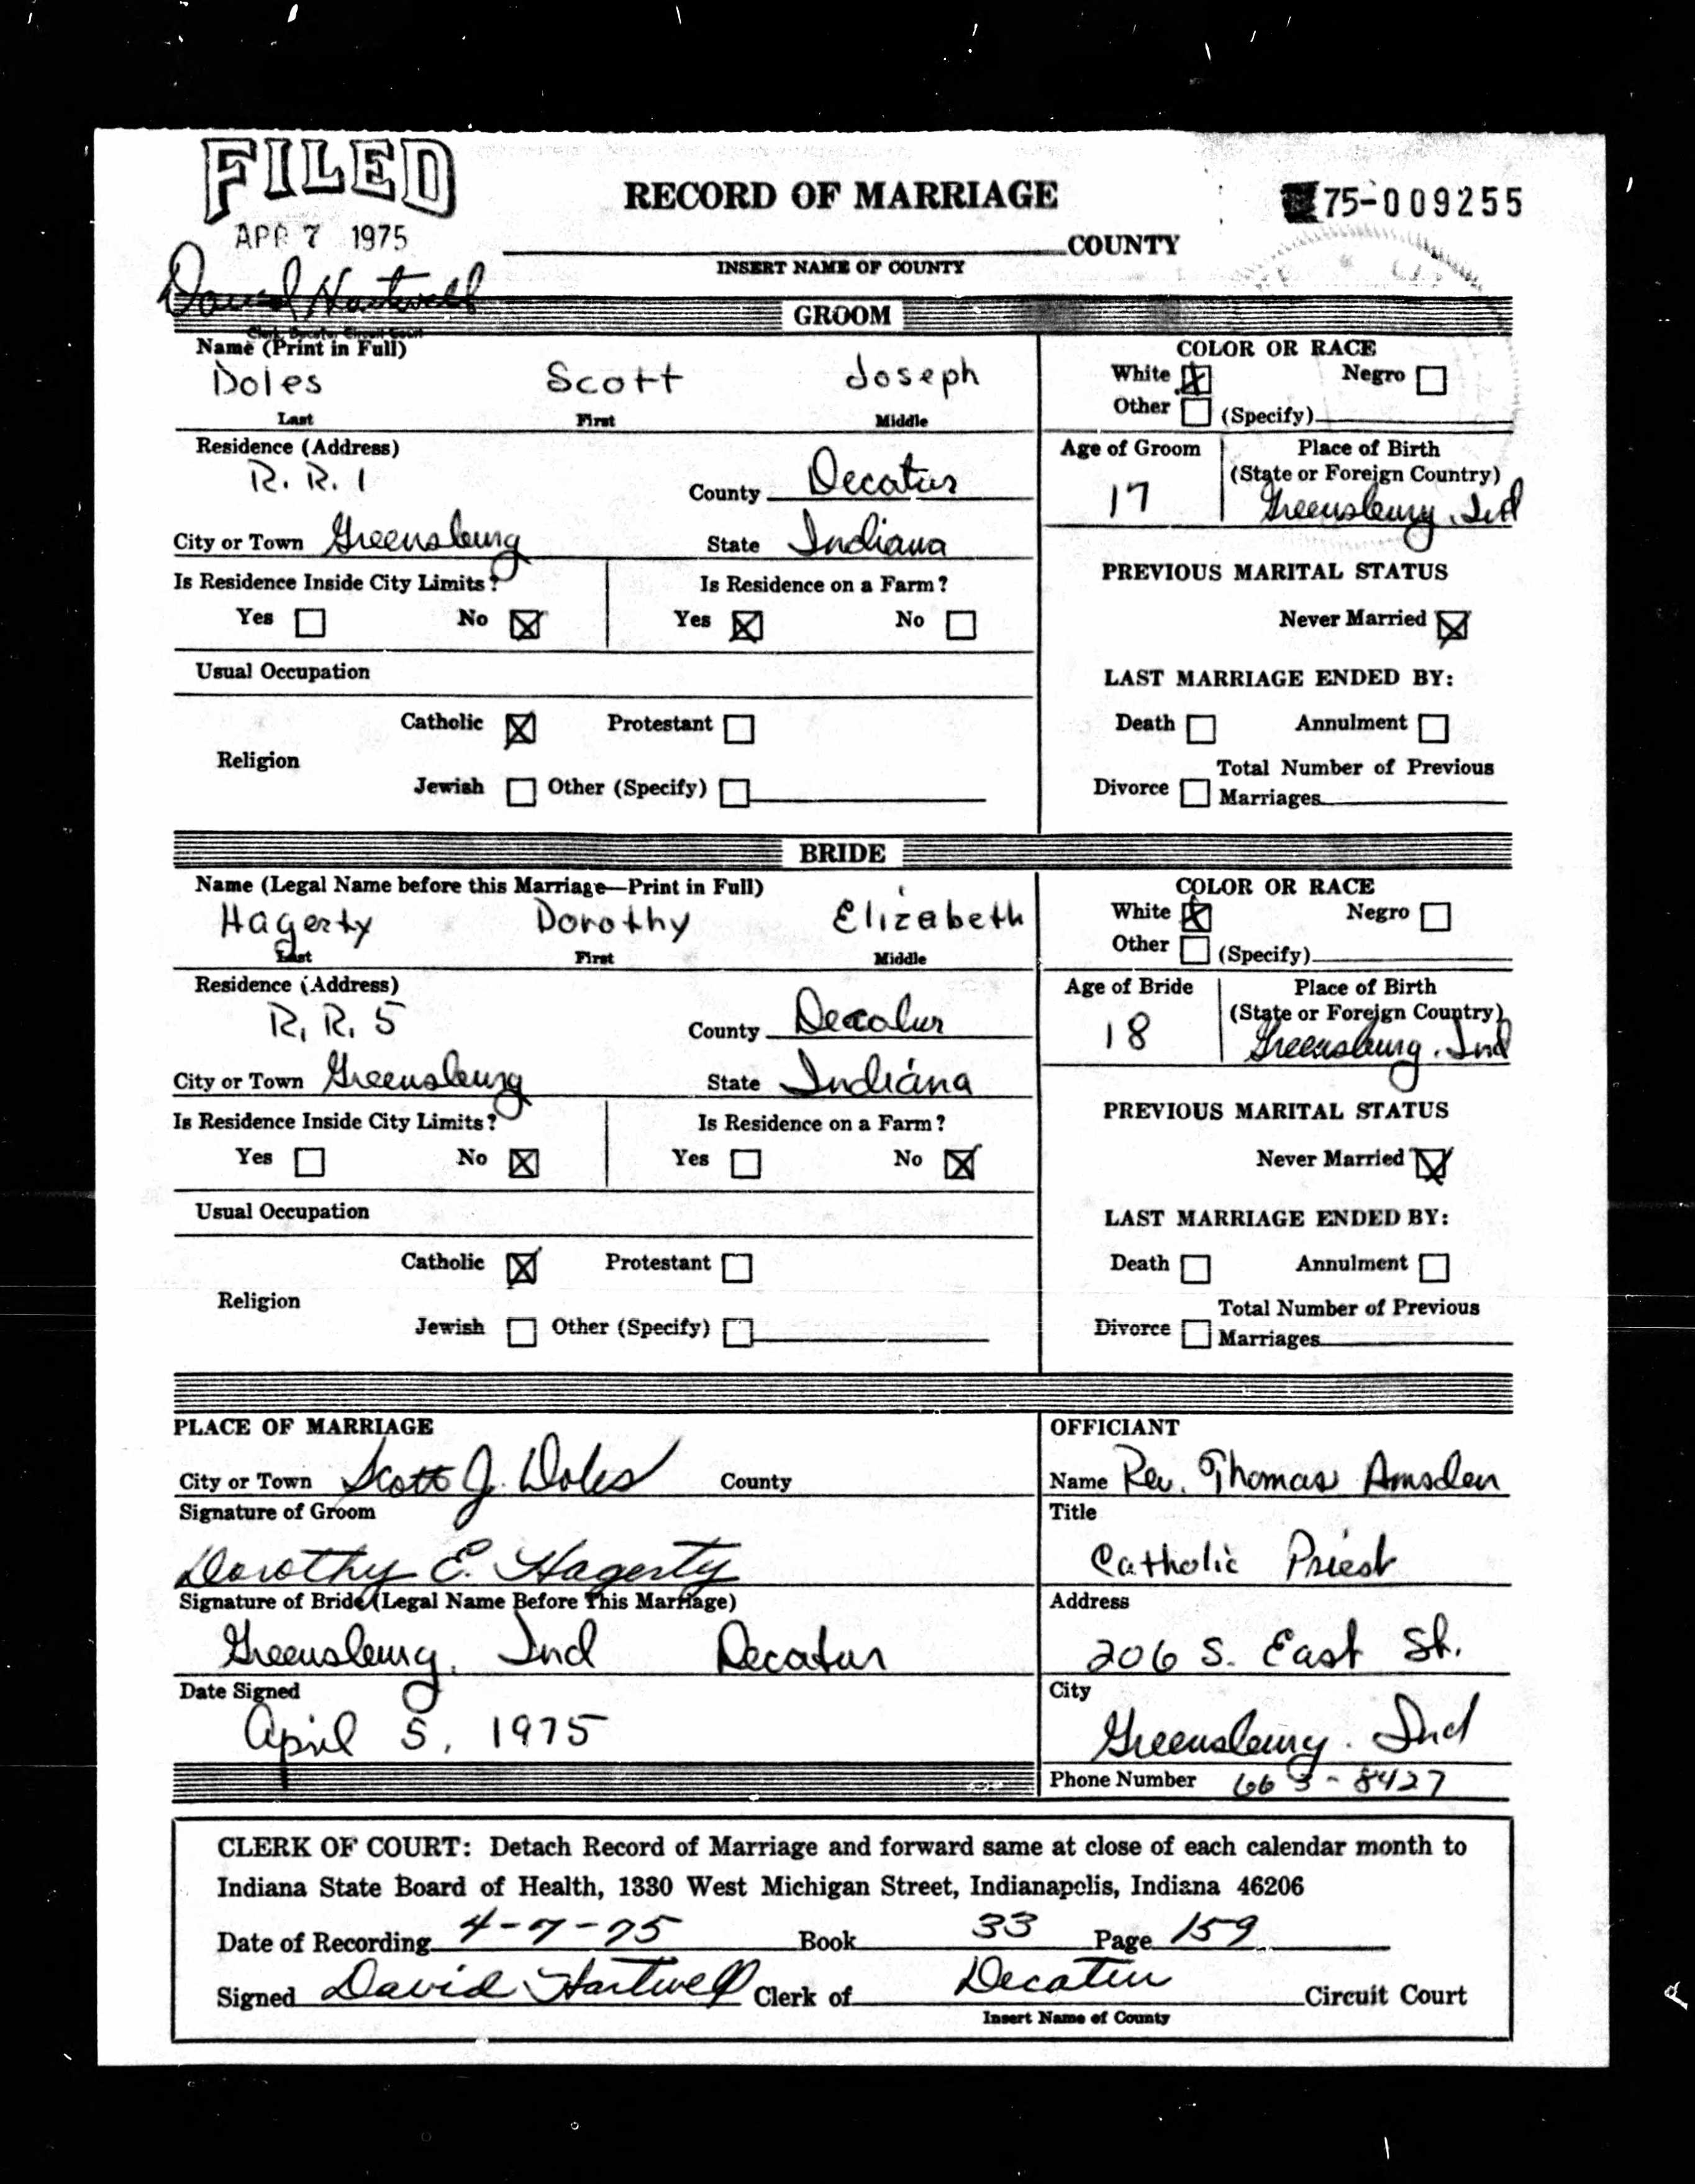 FILED
RECORD OF MARRIAGE
75-009255
APR 7 1975
COUNTY
INSERT NAME OF COUNTY
David Hartwell
Clerk, Decatur Circuit Court
GROOM
Name (Print in Full)
Doles Scott Joseph
Last First Middle
COLOR OR RACE
White ☒ Negro ☐
Other ☐ (Specify)
Residence (Address)
R. R. 1
County Decatur
City or Town Greensburg State Indiana
Age of Groom
17
Place of Birth
(State or Foreign Country)
Greensburg, Ind
Is Residence Inside City Limits?
Yes ☐ No ☒
Is Residence on a Farm?
Yes ☒ No ☐
PREVIOUS MARITAL STATUS
Never Married ☒
Usual Occupation
LAST MARRIAGE ENDED BY:
Catholic ☒ Protestant ☐
Religion
Jewish ☐ Other (Specify) ☐
Death ☐ Annulment ☐
Divorce ☐ Total Number of Previous
Marriages
BRIDE
Name (Legal Name before this Marriage—Print in Full)
Hagerty Dorothy Elizabeth
Last First Middle
COLOR OR RACE
White ☒ Negro ☐
Other ☐ (Specify)
Residence (Address)
R. R. 5
County Decatur
City or Town Greensburg State Indiana
Age of Bride
18
Place of Birth
(State or Foreign Country)
Greensburg, Ind
Is Residence Inside City Limits?
Yes ☐ No ☒
Is Residence on a Farm?
Yes ☐ No ☒
PREVIOUS MARITAL STATUS
Never Married ☒
Usual Occupation
LAST MARRIAGE ENDED BY:
Catholic ☒ Protestant ☐
Religion
Jewish ☐ Other (Specify) ☐
Death ☐ Annulment ☐
Divorce ☐ Total Number of Previous
Marriages
PLACE OF MARRIAGE
City or Town Scott J. Doles County
Signature of Groom
Dorothy E. Hagerty
Signature of Bride (Legal Name Before This Marriage)
Greensburg, Ind Decatur
Date Signed
April 5, 1975
OFFICIANT
Name Rev. Thomas Amsden
Title
Catholic Priest
Address
206 S. East St.
City
Greensburg. Ind
Phone Number 663-8427
CLERK OF COURT: Detach Record of Marriage and forward same at close of each calendar month to
Indiana State Board of Health, 1330 West Michigan Street, Indianapolis, Indiana 46206
Date of Recording 4-7-75 Book 33 Page 159
Signed David Hartwell Clerk of Decatur Circuit Court
Insert Name of County